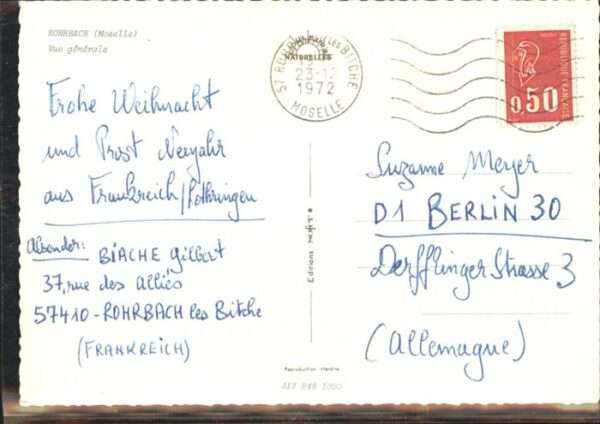 ROHRBACH (Moselle)
Vue générale
Frohe Weihnacht
und Prost Neujahr
aus Frankreich/Lothringen
Absender: BIACHE Gilbert
37, rue des Alliés
57410-ROHRBACH les Bitche
(FRANKREICH)
LES BITCHE
NATURELLES
23-12
1972
MOSELLE
REPUBLIQUE FRANÇAISE
0,50
Suzanne Meyer
D1 BERLIN 30
Derfflinger Strasse 3
(Allemagne)
Editions
Reproduction interdite